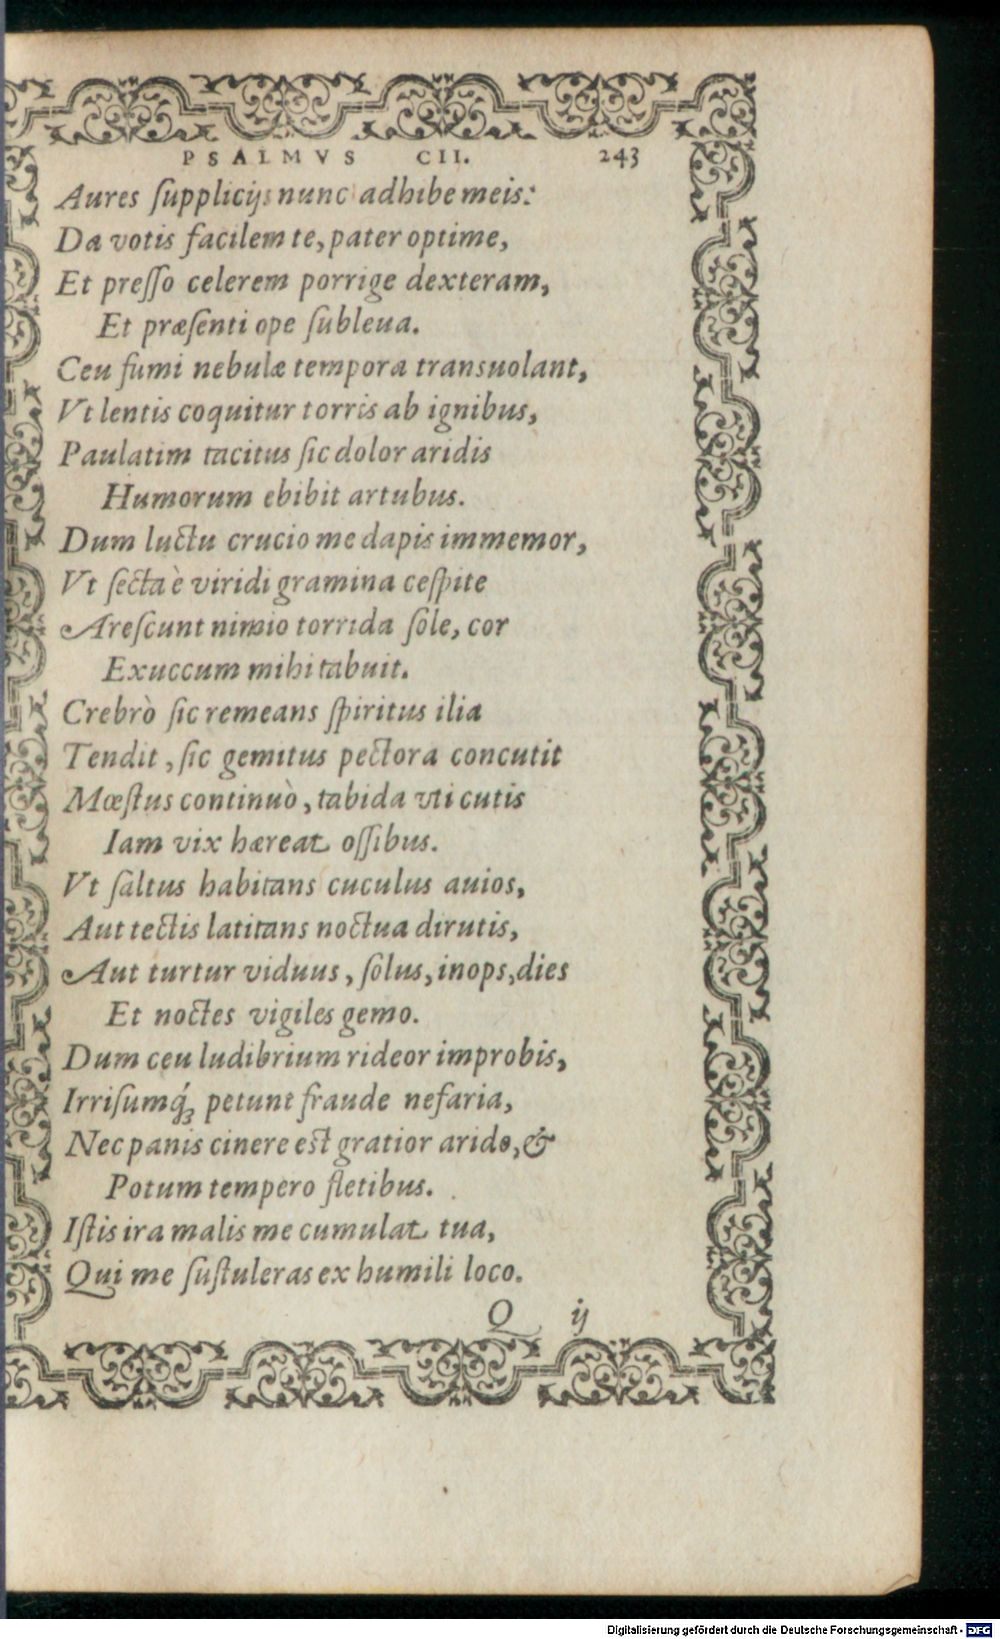 PSALMVS CII. 243
Aures ſupplicijs nunc adhibe meis:
Da votis facilem te, pater optime,
Et preſſo celerem porrige dexteram,
Et præſenti ope ſubleua.
Ceu fumi nebulæ tempora transuolant,
Vt lentis coquitur torris ab ignibus,
Paulatim tacitus ſic dolor aridis
Humorum ebibit artubus.
Dum luctu crucio me dapis immemor,
Vt ſecta è viridi gramina ceſpite
Areſcunt nimio torrida ſole, cor
Exuccum mihi tabuit.
Crebrò ſic remeans ſpiritus ilia
Tendit, ſic gemitus pectora concutit
Mœſtus continuò, tabida vti cutis
Iam vix hæreat oſſibus.
Vt ſaltus habitans cuculus auios,
Aut tectis latitans noctua dirutis,
Aut turtur viduus, ſolus, inops, dies
Et noctes vigiles gemo.
Dum ceu ludibrium rideor improbis,
Irriſumq́; petunt fraude nefaria,
Nec panis cinere est gratior arido, &
Potum tempero fletibus.
Iſtis ira malis me cumulat tua,
Qui me ſuſtuleras ex humili loco.
Q ij
Digitalisierung gefördert durch die Deutsche Forschungsgemeinschaft - DFG